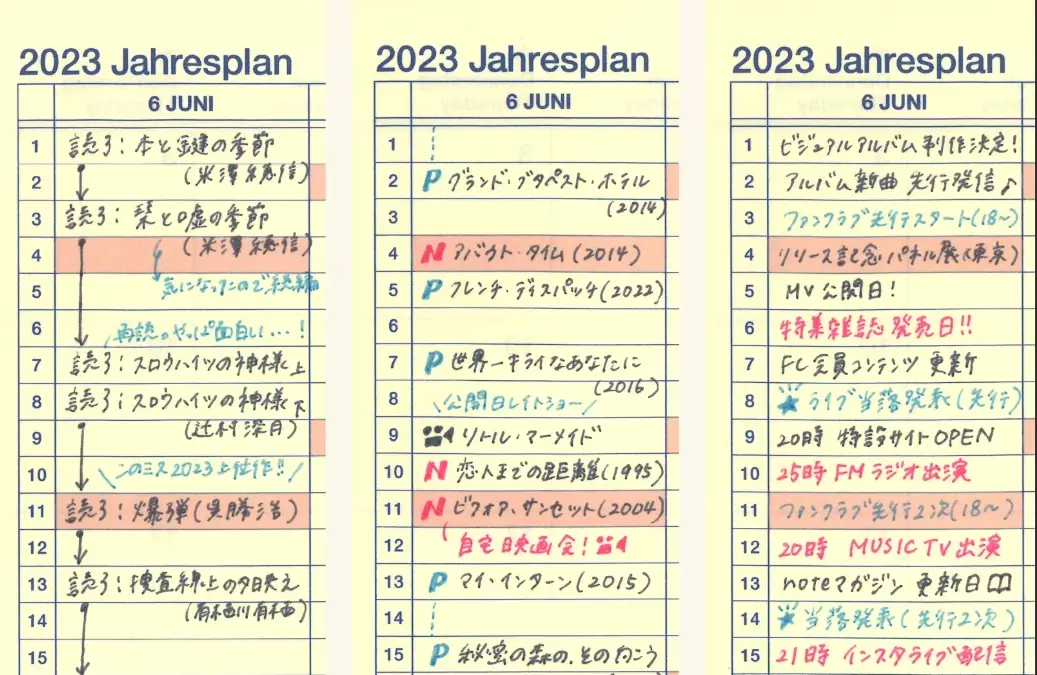 2023 Jahresplan
6 JUNI
1 読了:本と鍵の季節
2 (米澤穂信)
3 読了:栞と嘘の季節
4 (米澤穂信)
5 気になってたので続編
6 再読。やっぱ面白い…!
7 読了:スロウハイツの神様上
8 読了:スロウハイツの神様下
9 (辻村深月)
10 このミス2023上位作!!
11 読了:爆弾(呉勝浩)
12
13 読了:捜査線上の夕映え
14 (有栖川有栖)
15
2023 Jahresplan
6 JUNI
1
2 P グランド・ブダペスト・ホテル
3 (2014)
4 N アバウト・タイム(2014)
5 P フレンチ・ディスパッチ(2022)
6
7 P 世界一キライなあなたに
8 公開日レイトショー (2016)
9 リトル・マーメイド
10 N 恋人までの距離(1995)
11 N ビフォア・サンセット(2004)
12 自宅映画会!
13 P マイ・インターン(2015)
14
15 P 秘密の森の、その向こう
2023 Jahresplan
6 JUNI
1 ビジュアルアルバム制作決定!
2 アルバム新曲 先行発信♪
3 ファンクラブ先行スタート(18〜)
4 リリース記念パネル展(東京)
5 MV公開日!
6 特集雑誌発売日!!
7 FC会員コンテンツ 更新
8 ライブ当落発表(先行)
9 20時 特設サイトOPEN
10 25時 FMラジオ出演
11 ファンクラブ先行2次(18〜)
12 20時 MUSIC TV出演
13 noteマガジン 更新日
14 当落発表(先行2次)
15 21時 インスタライブ配信